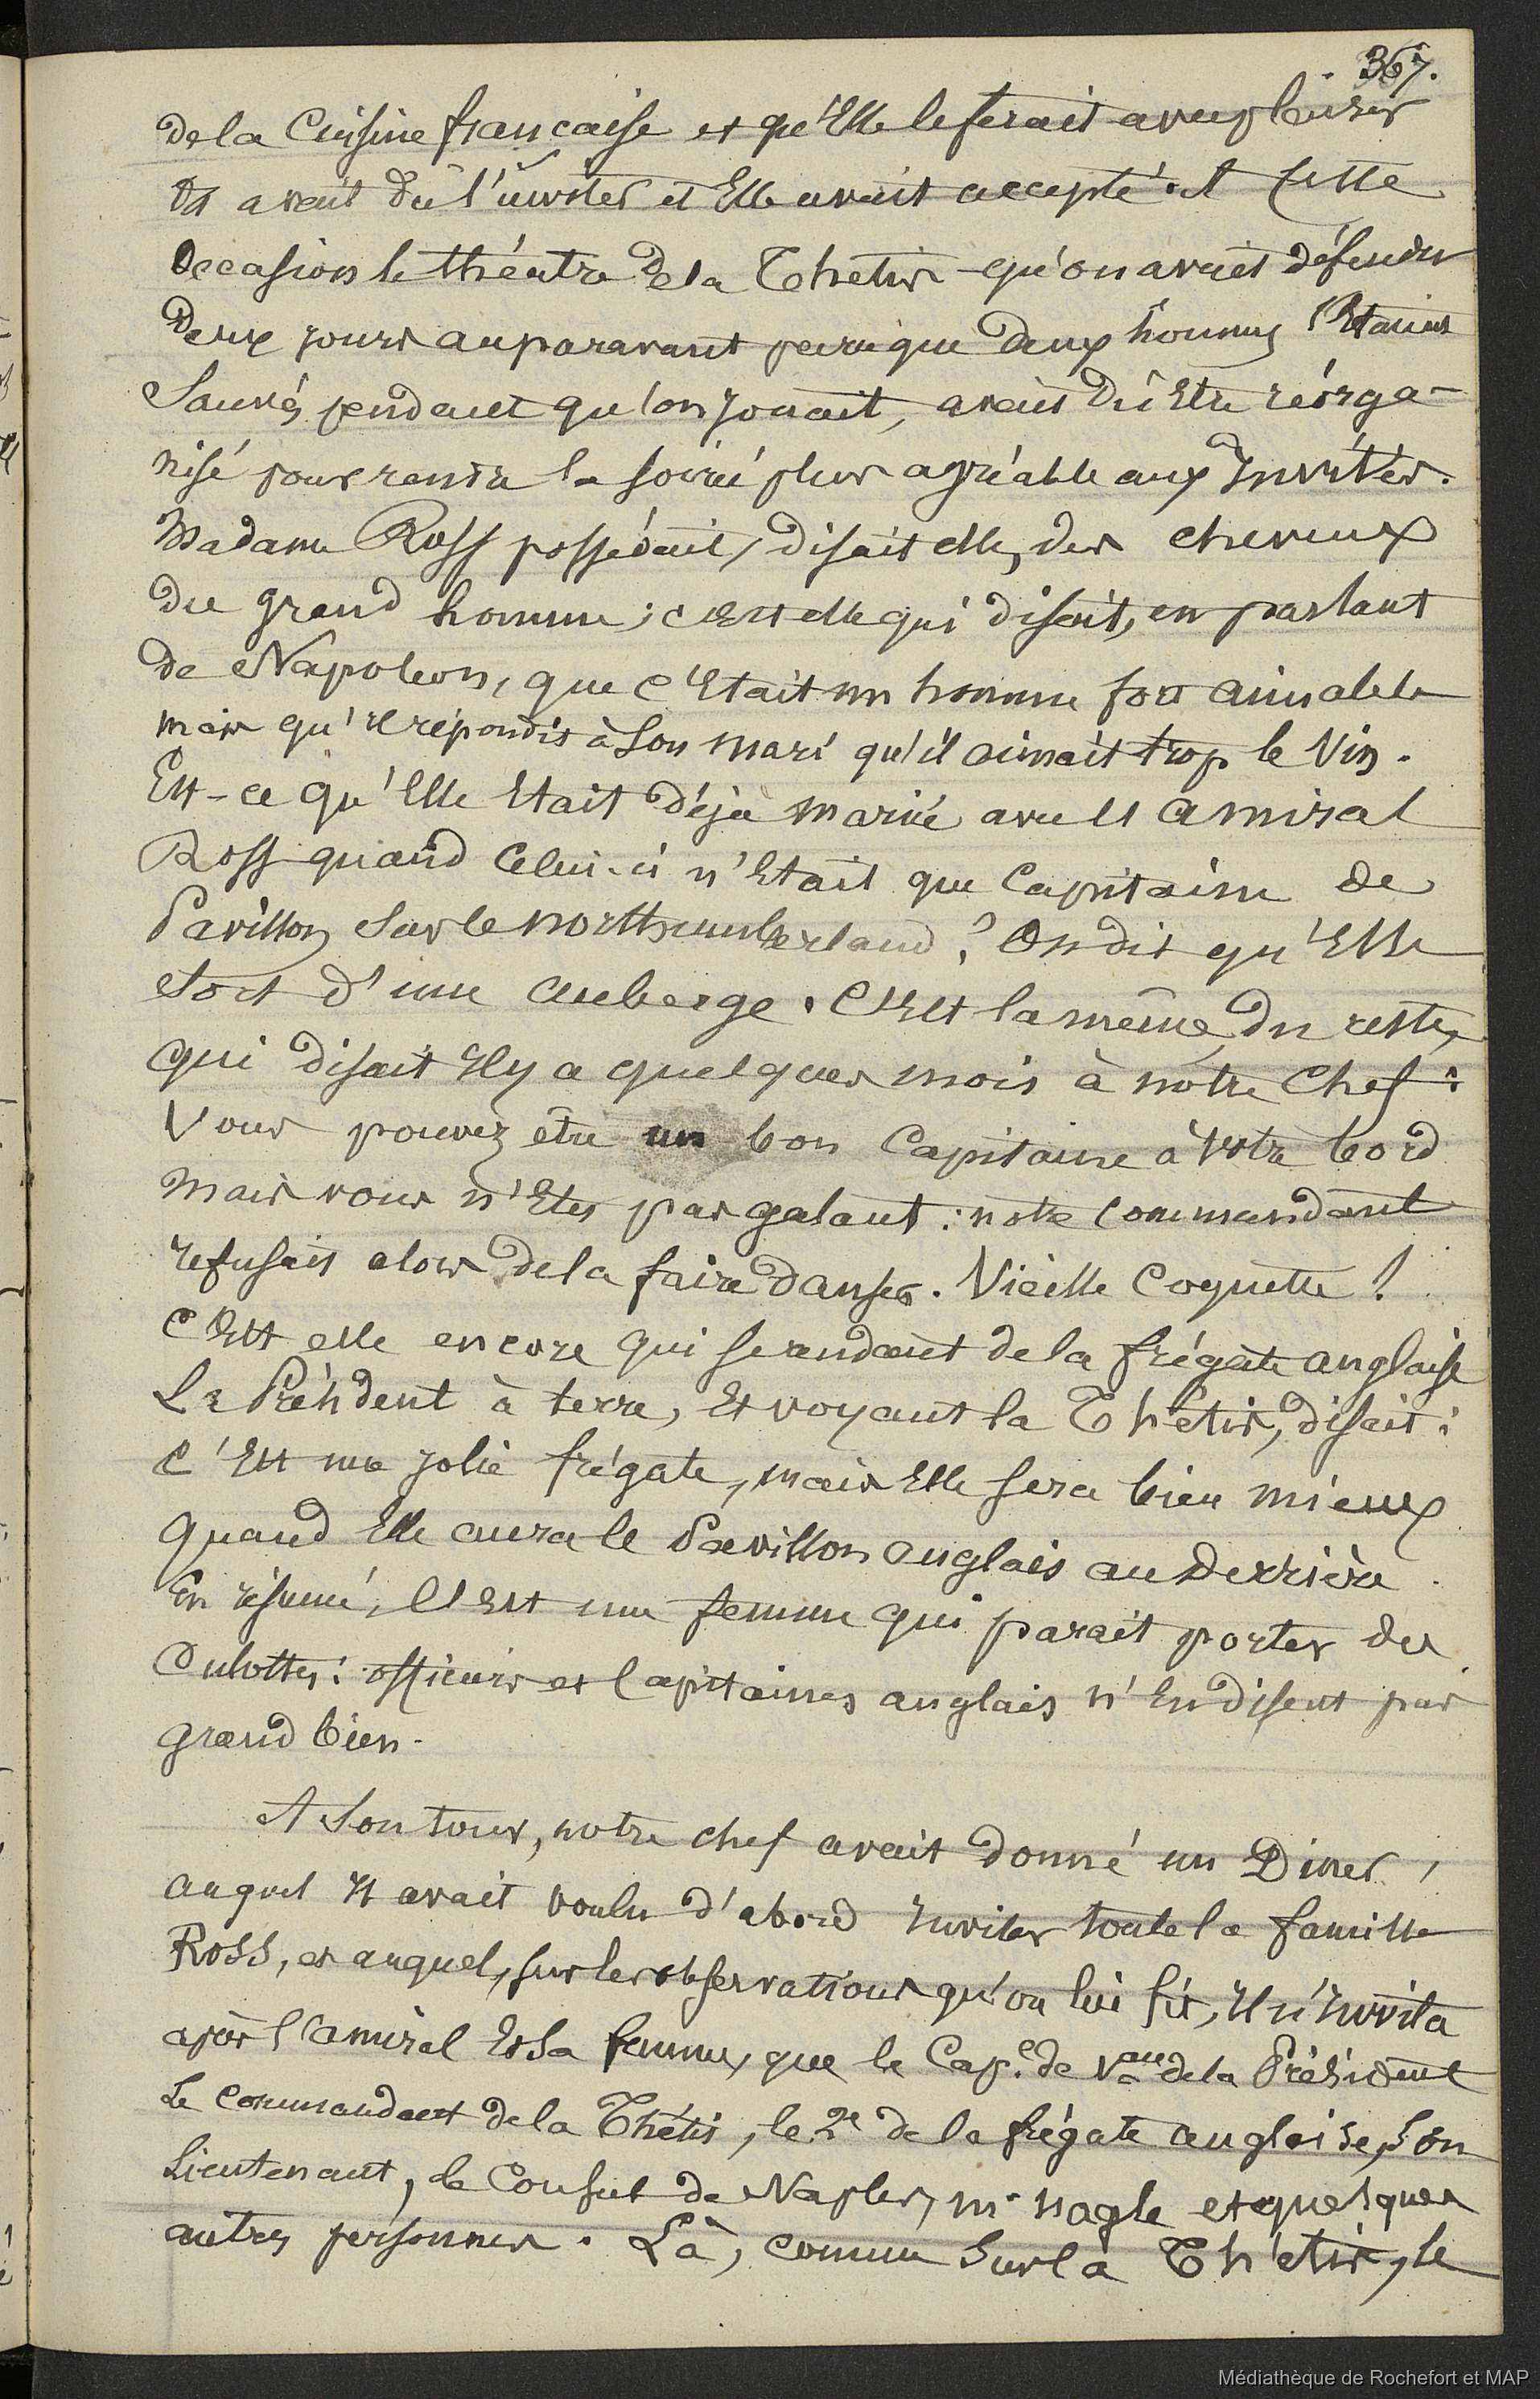 367.
de la Cuisine française et qu'Elle le ferait avec plaisir
Il avait dû l'inviter et Elle avait accepté. A cette
Occasion le théâtre de la Thetis qu'on avait défendu
deux jours auparavant parceque deux hommes s'Etaient
Sauvés pendant qu'on jouait, avait dû Etre réorga-
nisé pour rendre la soirée plus agréable aux Invités.
Madame Ross possédait, disait elle, des cheveux
du grand homme; c'Est elle qui disait, en parlant
de Napoleon, que c'Etait un homme fort aimable
mais qu'il répondit à Son mari qu'il aimait trop le Vin.
Est-ce qu'Elle Etait déjà mariée avec l'amiral
Ross quand Celui-ci n'Etait que Capitaine de
Pavillon Sur le northumberland? On dit qu'Elle
Sort d'une auberge. C'Est la même, du reste,
qui disait Il y a quelques mois à notre Chef:
Vous pouvez être un bon Capitaine à Votre bord
Mais vous n'Etes pas galant: notre Commandant
refusait alors de la faire danser. Vieille Coquette!
C'Est elle encore qui se rendant de la frégate anglaise
Le Président à terre, Et voyant la Thétis, disait:
C'Est une jolie frégate, mais Elle sera bien mieux
quand Elle aura le Pavillon anglais au Derrière.
En résumé, C'Est une femme qui parait porter des
Culottes: officiers et Capitaines anglais n'En disent pas
grand bien.
A Son tour, notre chef avait donné un Diner,
auquel Il avait voulu d'abord Inviter toute la famille
Ross, et auquel, sur les observations qu'on lui fit, Il n'Invita
après l'amiral Et Sa femme, que le Cap.e de Vau de la Président
Le Commandant de la Thétis, le 2e de la frégate anglaise, Son
Lieutenant, le Consul de Naples, mr nagle et quelques
autres personnes. Là, comme Sur la Thétis, le
Médiathèque de Rochefort et MAP